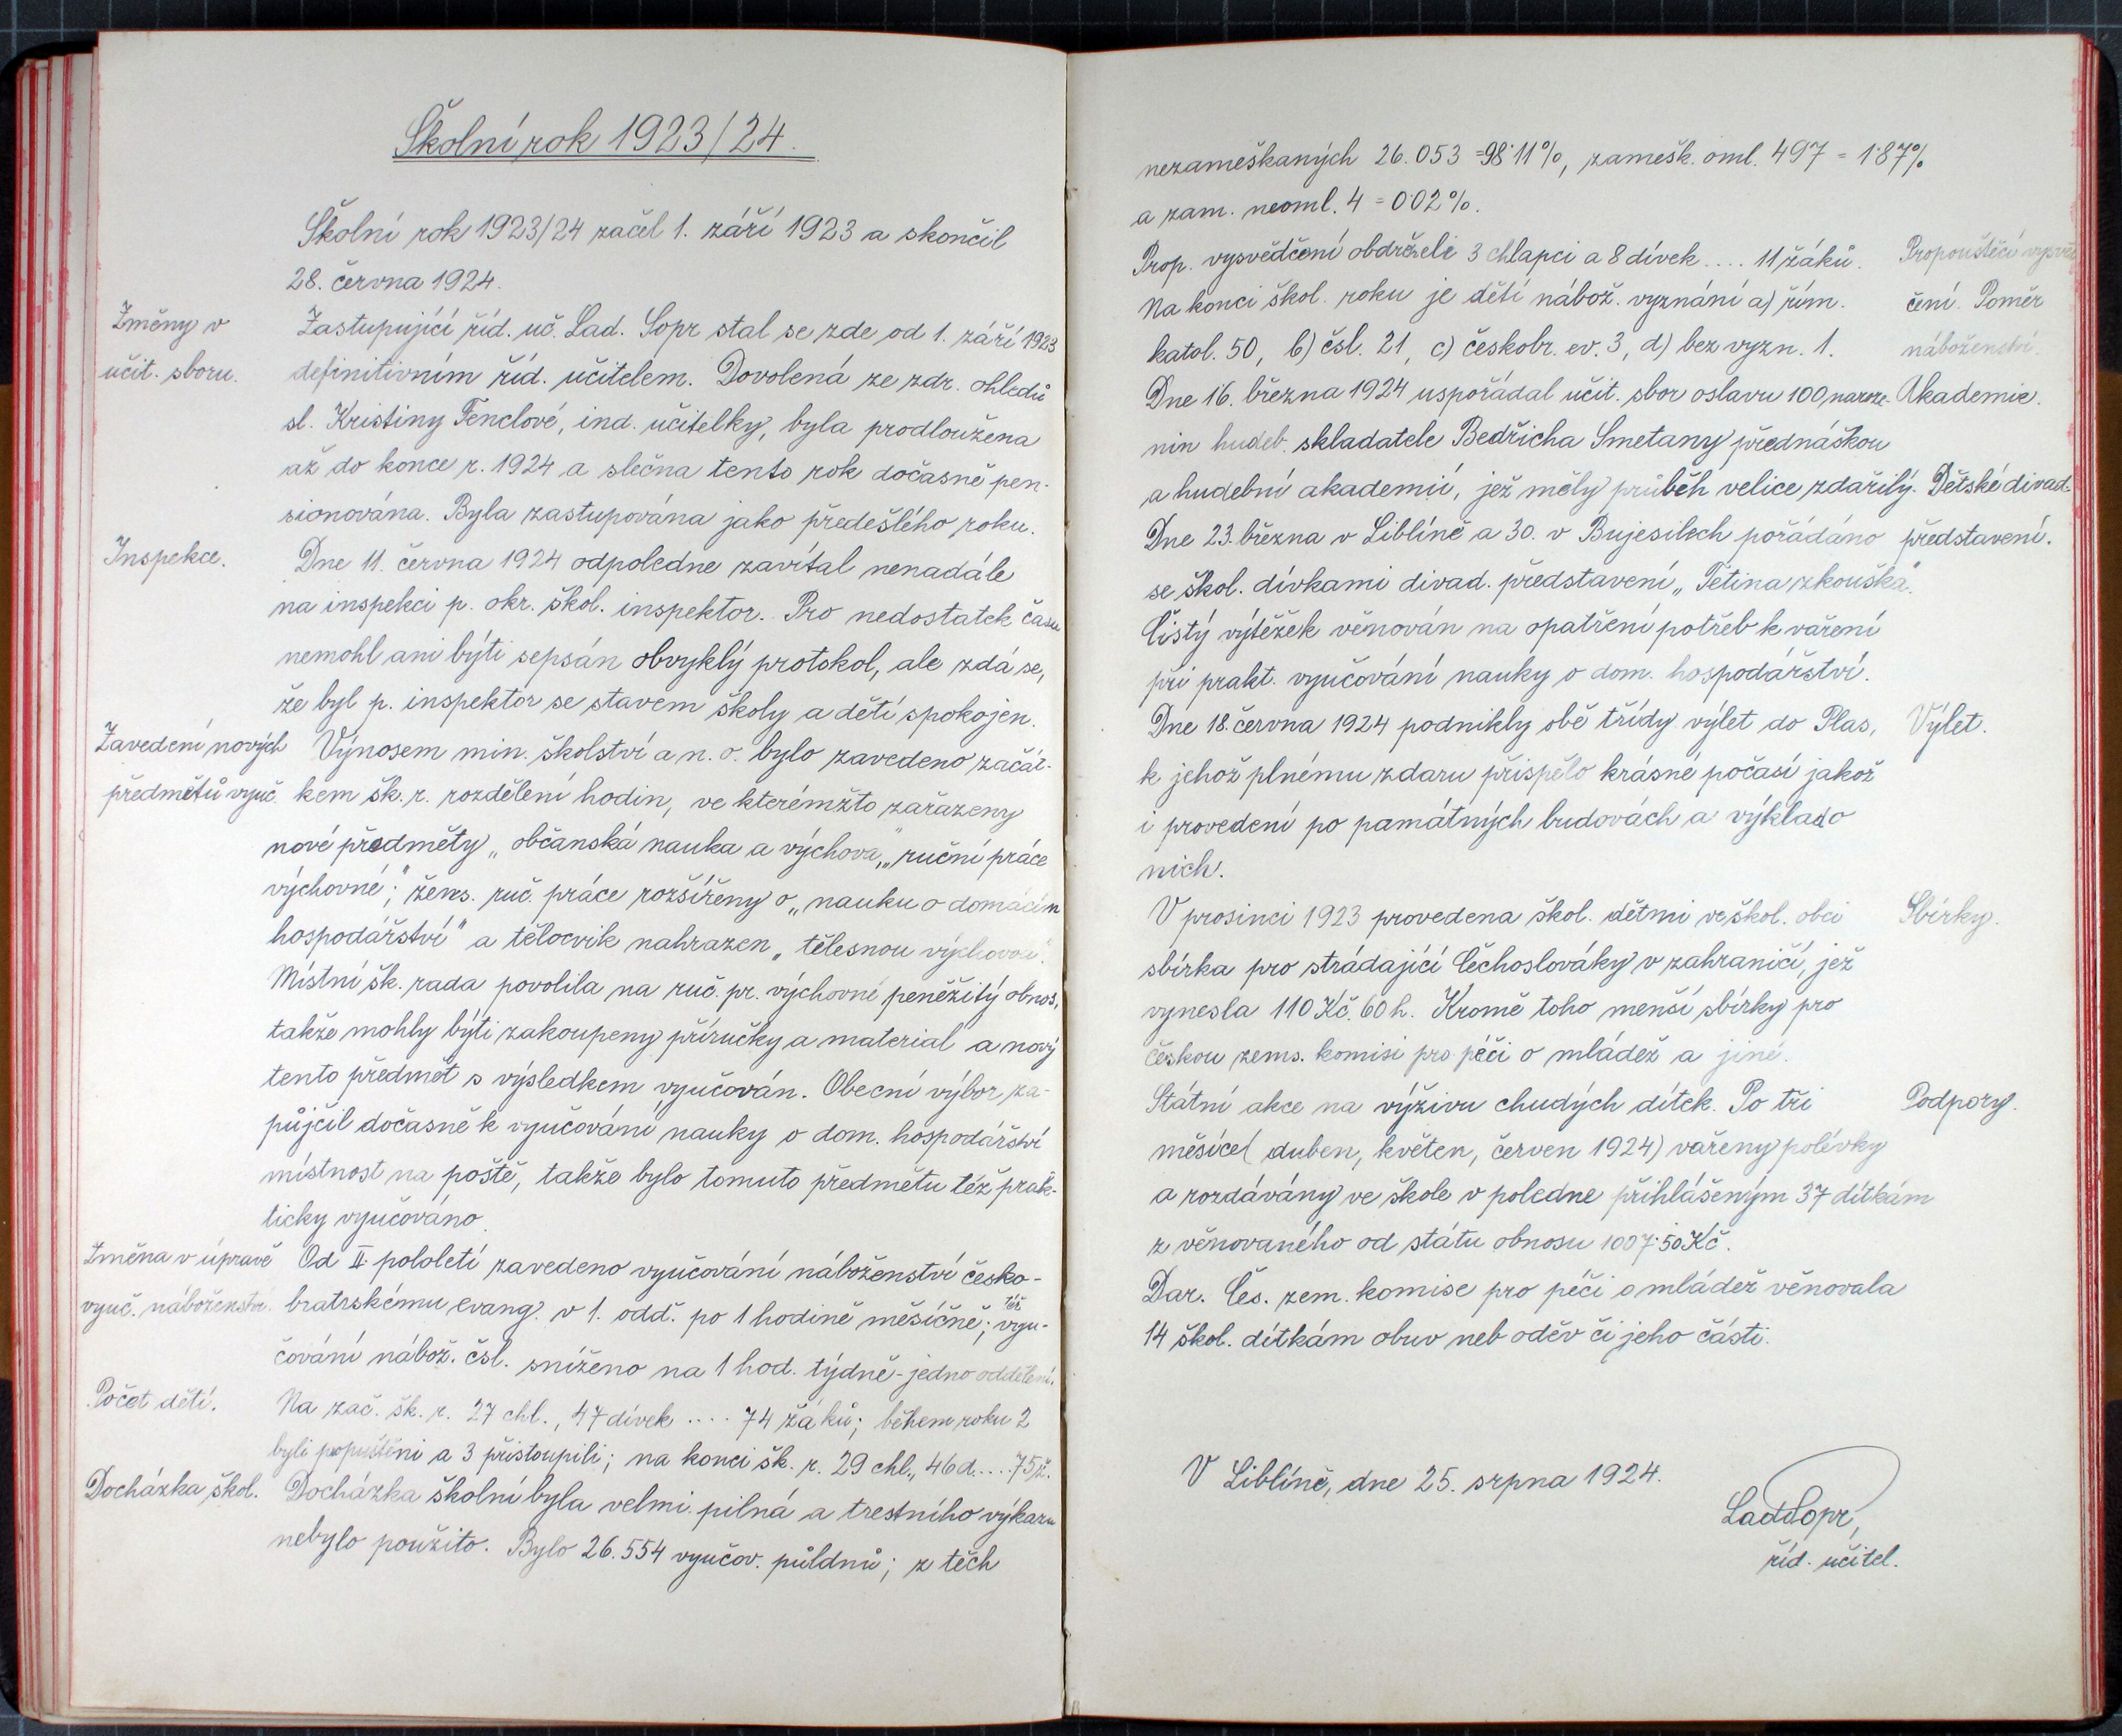 Školní rok 1923/24.
Školní rok 1923/24 začal 1. září 1923 a skončil
28. června 1924.
Změny v
učit. sboru.
Zastupující říd. uč. Lad. Sopr stal se zde od 1. září 1923
definitivním říd. učitelem. Dovolená ze zdr. ohledů
sl. Kristiny Fenclové, ind. učitelky, byla prodloužena
až do konce r. 1924 a slečna tento rok dočasně pen-
sionována. Byla zastupována jako předešlého roku.
Inspekce.
Dne 11. června 1924 odpoledne zavítal nenadále
na inspekci p. okr. škol. inspektor. Pro nedostatek času
nemohl ani býti sepsán obvyklý protokol, ale zdá se,
že byl p. inspektor se stavem školy a dětí spokojen.
Zavedení nových
předmětů vyuč.
Výnosem min. školství a n. o. bylo zavedeno začát-
kem šk. r. rozdělení hodin, ve kterémžto zařazeny
nové předměty „občanská nauka a výchova," „ruční práce
výchovné"; žens. ruč. práce rozšířeny o „nauku o domácím
hospodářství" a tělocvik nahrazen „tělesnou výchovou".
Místní šk. rada povolila na ruč. pr. výchovné peněžitý obnos,
takže mohly býti zakoupeny příručky a material a nový
tento předmět s výsledkem vyučován. Obecní výbor za-
půjčil dočasně k vyučování nauky o dom. hospodářství
místnost na poště, takže bylo tomuto předmětu též prak-
ticky vyučováno.
Změna v úpravě
vyuč. náboženství.
Od II. pololetí zavedeno vyučování náboženství česko-
bratrskému evang. v 1. odd. po 1 hodině měsíčně; též vyu-
čování nábož. čsl. sníženo na 1 hod. týdně - jedno oddělení.
Počet dětí.
Na zač. šk. r. 27 chl., 47 dívek .... 74 žáků; během roku 2
byli propuštěni a 3 přistoupili; na konci šk. r. 29 chl., 46 d.... 75 ž.
Docházka škol.
Docházka školní byla velmi pilná a trestního výkazu
nebylo použito. Bylo 26.554 vyučov. půldnů; z těch
nezameškaných 26.053 = 98·11%, zamešk. oml. 497 = 1·87%
a zam. neoml. 4 = 0·02%.
Prop. vysvědčení obdrželi 3 chlapci a 8 dívek .... 11 žáků.
Propouštěcí vysvěd
čení. Poměr
náboženství.
Na konci škol. roku je dětí nábož. vyznání a) řím.
katol. 50, b) čsl. 21, c) českobr. ev. 3, d) bez vyzn. 1.
Dne 16. března 1924 uspořádal učit. sbor oslavu 100 naroze-
Akademie.
nin hudeb. skladatele Bedřicha Smetany přednáškou
a hudební akademií, jež měly průběh velice zdařilý.
Dětské divad.
představení.
Dne 23. března v Liblíně a 30. v Bujesilech pořádáno
se škol. dívkami divad. představení „Tetina zkouška".
Čistý výtěžek věnován na opatření potřeb k vaření
při prakt. vyučování nauky o dom. hospodářství.
Dne 18. června 1924 podnikly obě třídy výlet do Plas,
Výlet.
k jehož plnému zdaru přispělo krásné počasí jakož
i provedení po památných budovách a výklad o
nich.
V prosinci 1923 provedena škol. dětmi ve škol. obci
Sbírky.
sbírka pro strádající Čechoslováky v zahraničí, jež
vynesla 110 Kč. 60 h. Kromě toho menší sbírky pro
českou zems. komisi pro péči o mládež a jiné.
Státní akce na výživu chudých dítek. Po tři
Podpory.
měsíce (duben, květen, červen 1924) vařeny polévky
a rozdávány ve škole v poledne přihlášeným 37 dítkám
z věnovaného od státu obnosu 1007·50 Kč.
Dar. Čes. zem. komise pro péči o mládež věnovala
14 škol. dítkám obuv neb oděv či jeho části.
V Liblíně, dne 25. srpna 1924.
Lad Sopr,
říd. učitel.